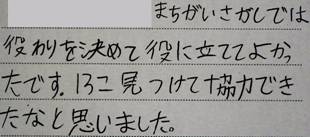 まちがいさがしでは
役わりを決めて役に立ててよかっ
たです。13こ見つけて協力でき
たなと思いました。